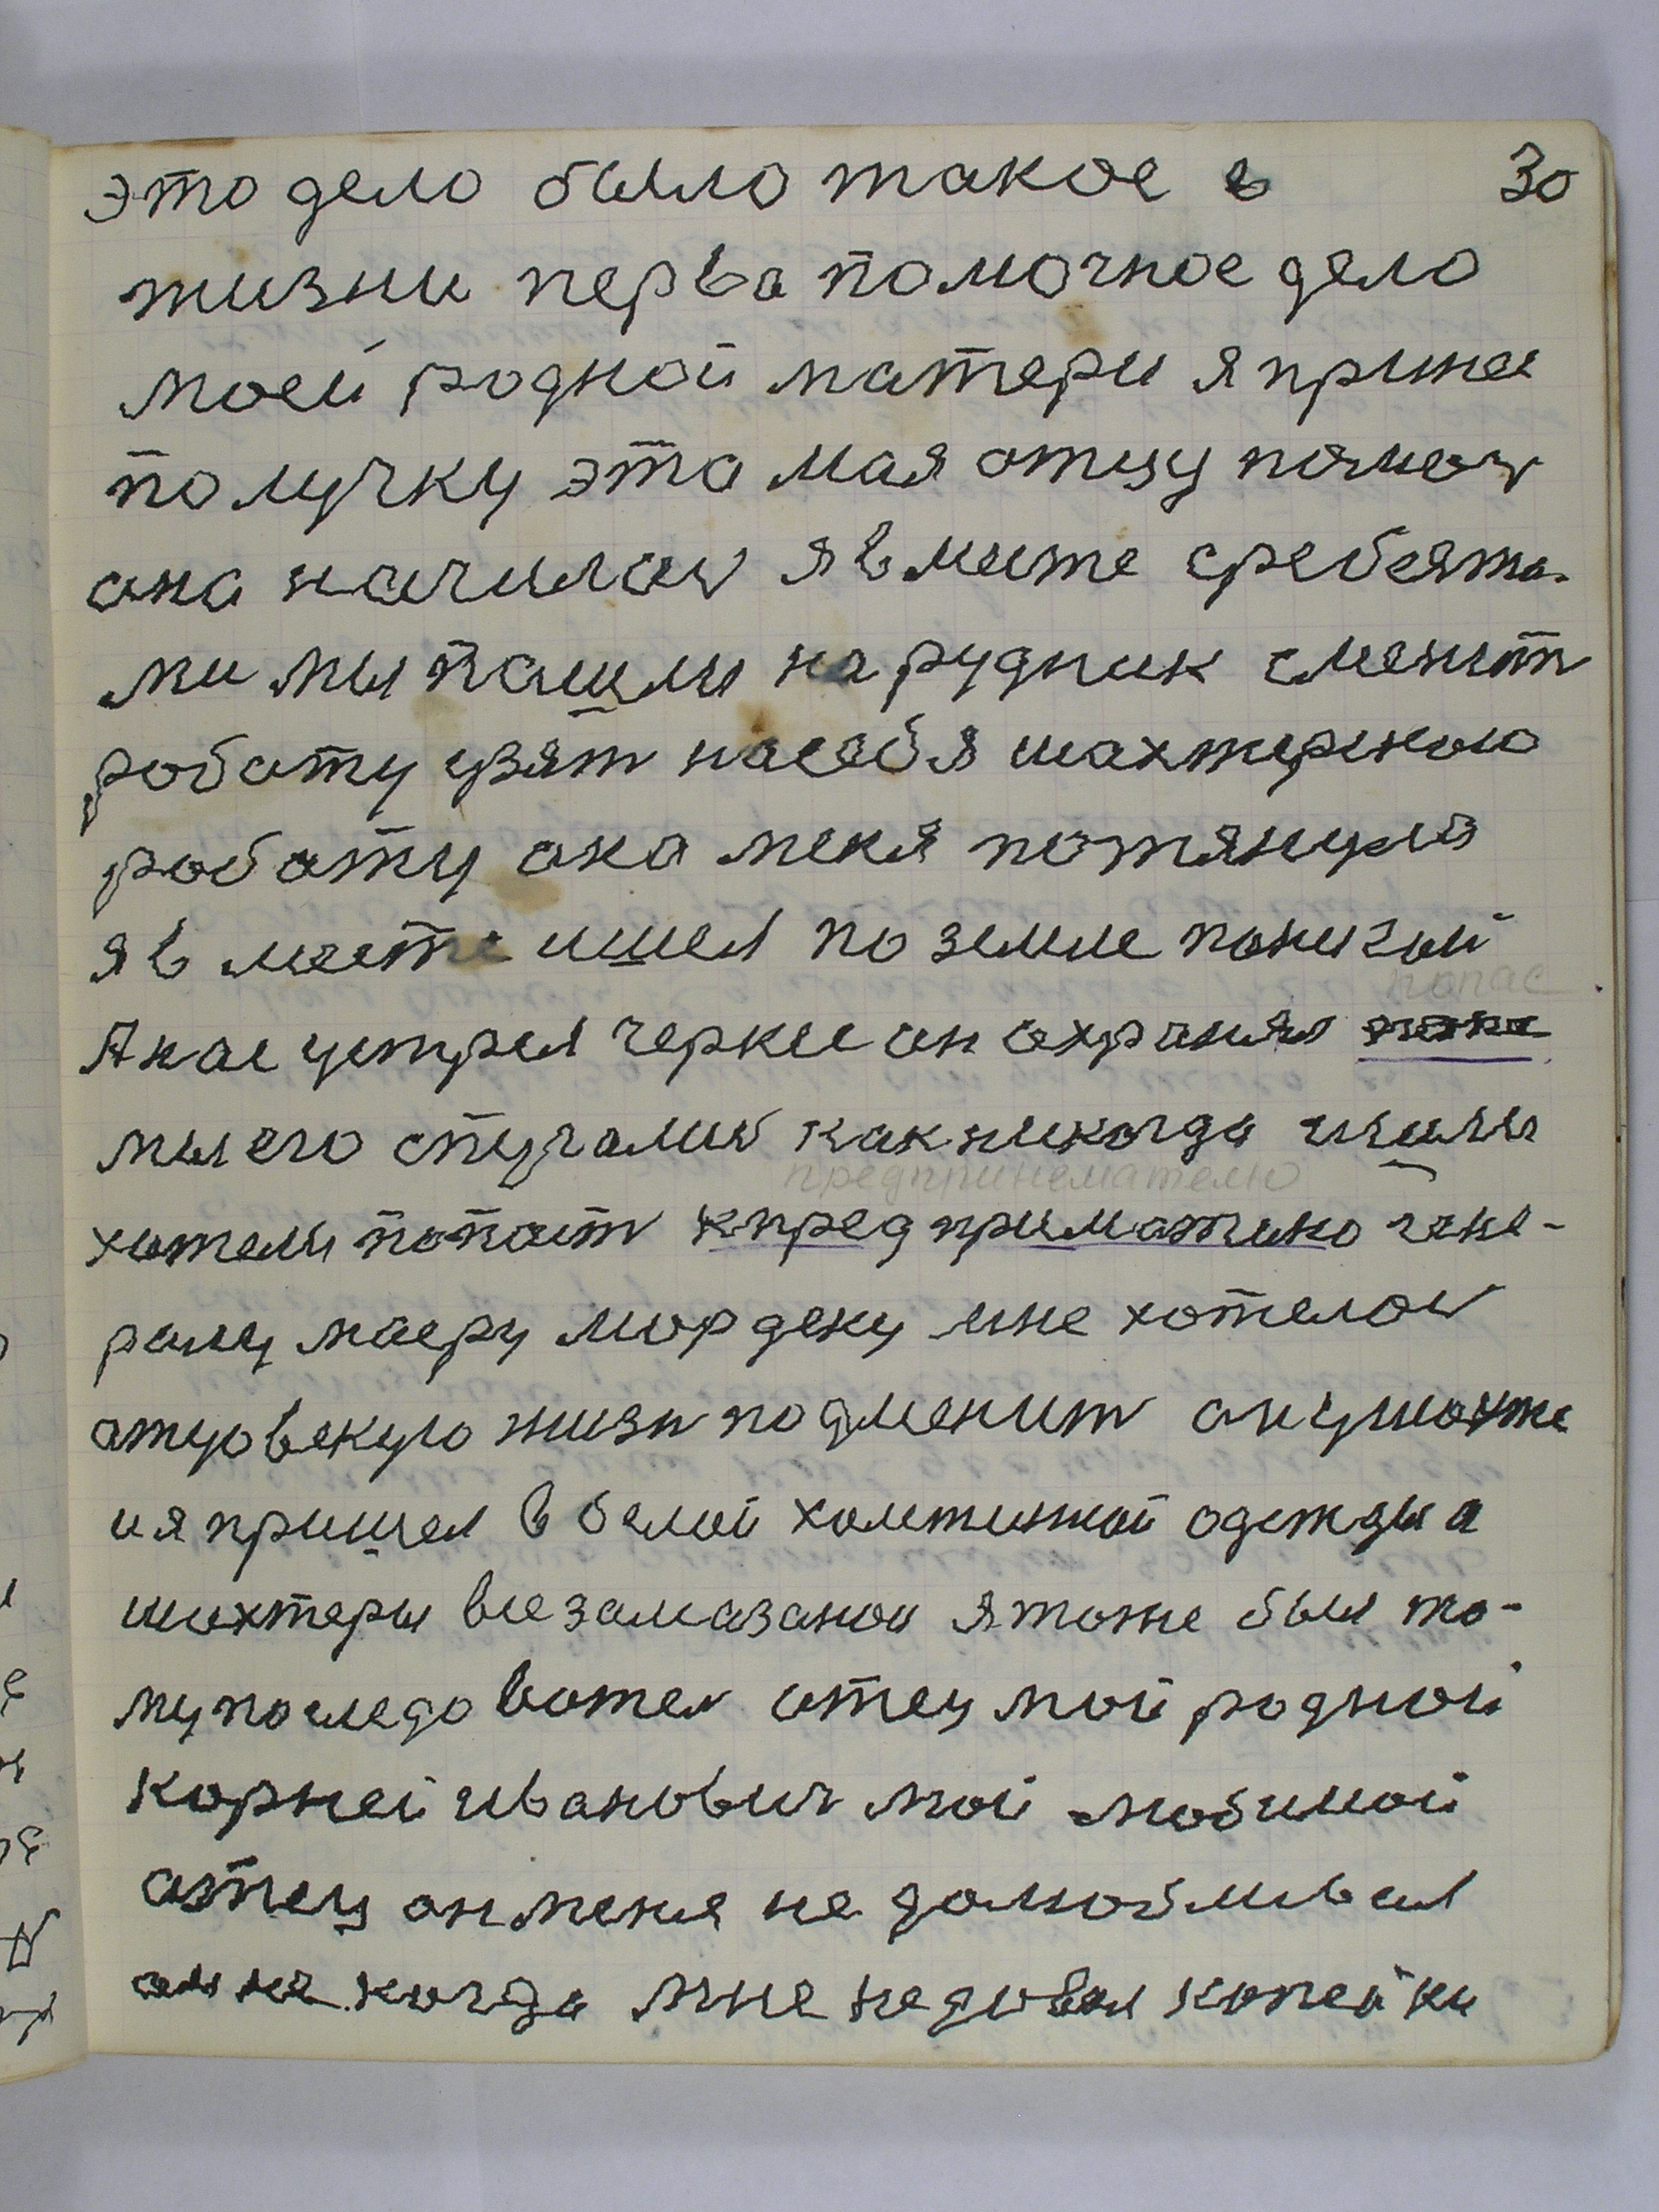 это дело было такое в 30
жизни перва помочное дело
моей родной матери я принес
получку это мая отцу помоч
она началась я вместе сребята-
ми мы пашли на рудник сменит
роботу узят насебя шахтерскою
роботу она меня потянула
я вместе ишел по земле понизкой
А нас устрел черкес он охранял попас
мы его спугалис как никогда ишли
предпринемателю
хотели попаст кпредприматилю гене-
ралу маеру мордеку мне хотелось
атцовскую жизн подменит он у шахте
и я пришел в белой холстиной одежды а
шахтеры все замазанои я тоже был то-
му последовател отец мой родной
Корней иванович мой любимой
отец он меня не долюбливал
он не когда мне недовал копейки